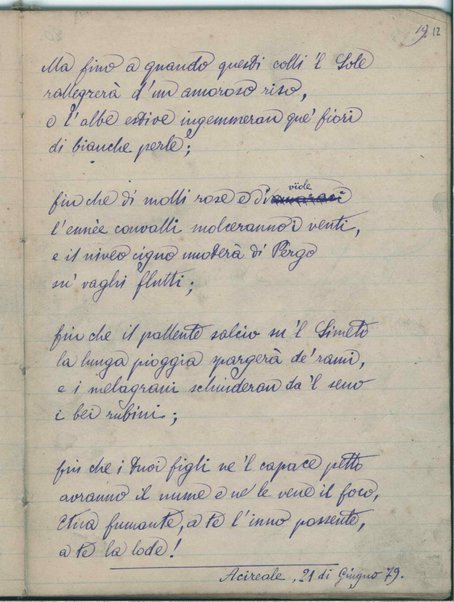 19 12
Ma fino a quando questi colli 'l Sole
rallegrerà d'un amoroso riso,
o l'albe estive ingemmeran que' fiori
di bianche perle;
fin che di molli rose e di viole
l'ennèe convalli molceranno i venti,
e il niveo cigno nuoterà di Pergo
su' vaghi flutti;
fin che il pallente salcio su 'l Simeto
la lunga pioggia spargerà de' rami,
e i melagrani schiuderan da 'l seno
i bei rubini;
fin che i tuoi figli ne 'l capace petto
avranno il nume e ne le vene il foco,
Etna fumante, a te l'inno possente,
a te la lode!
Acireale, 21 di Giugno 79.